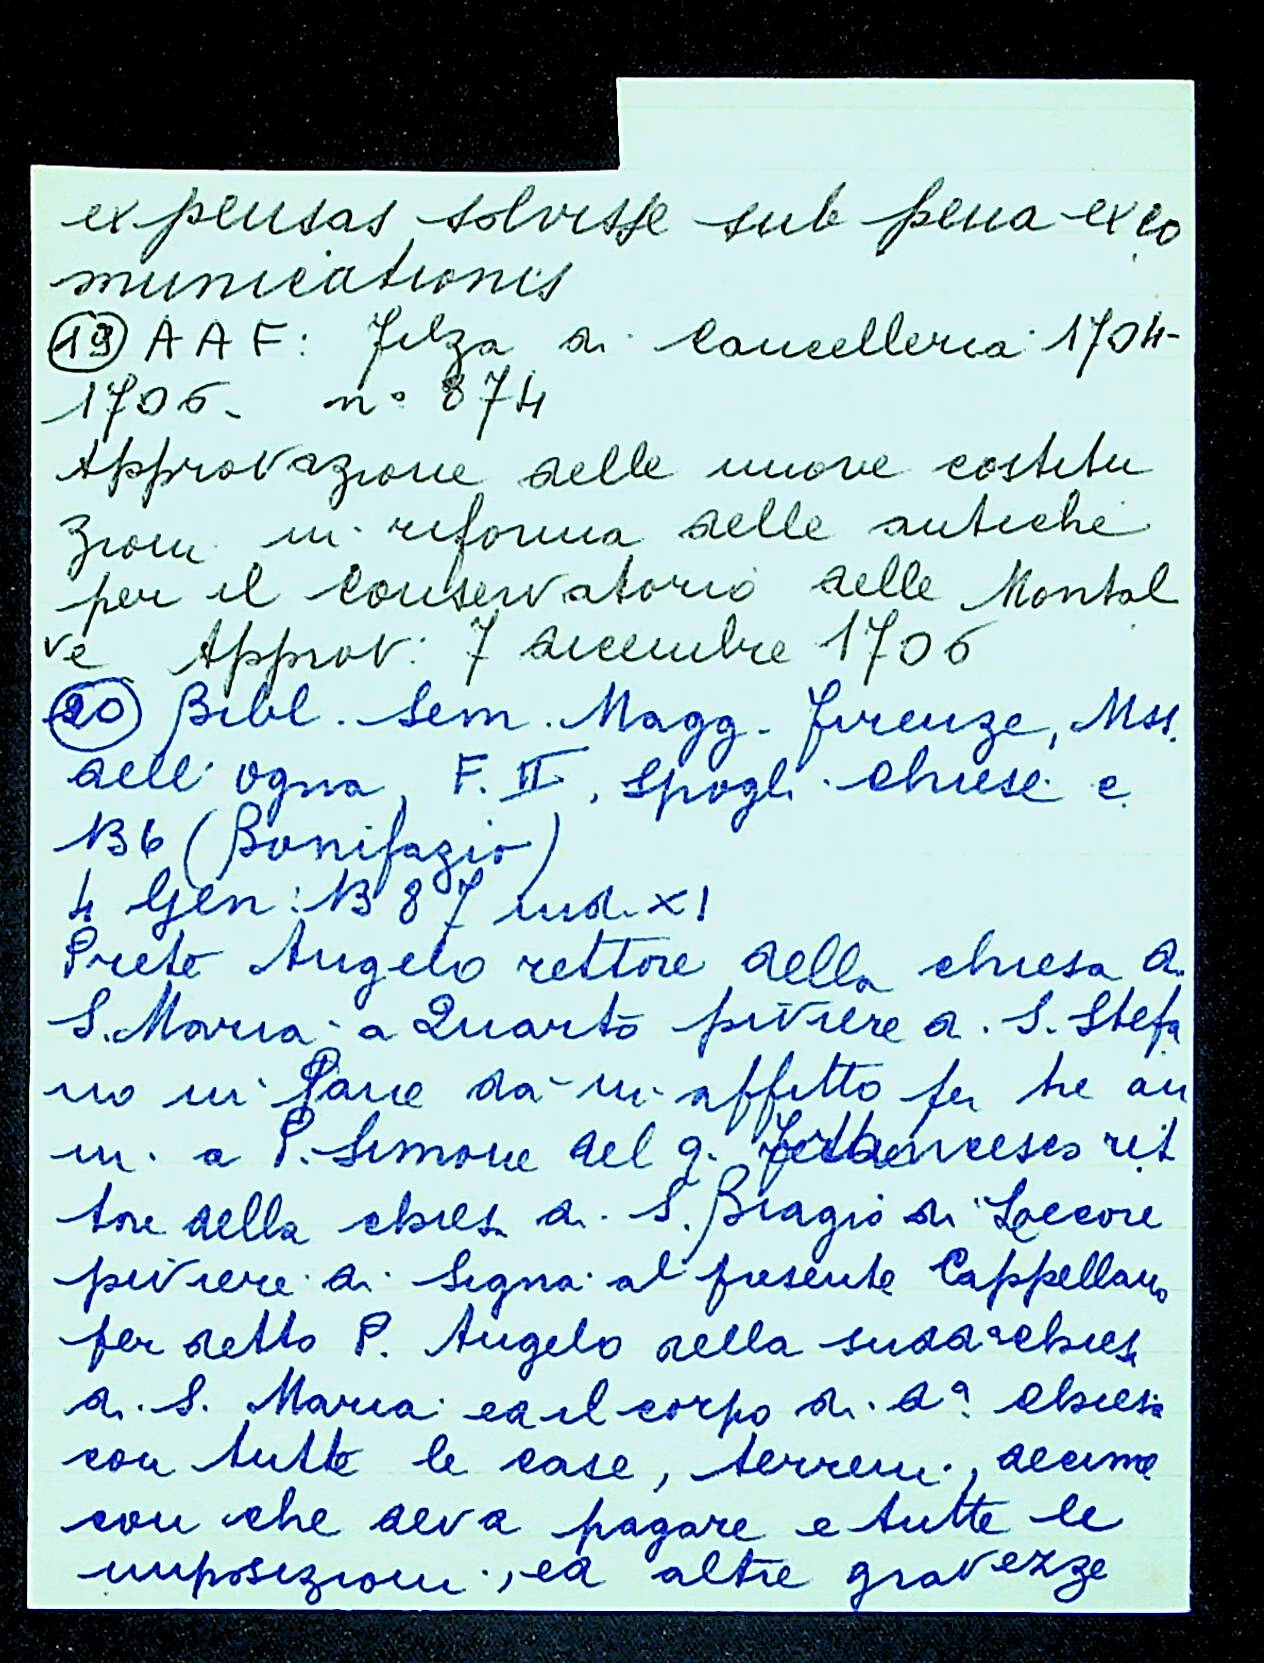 expensas solvisse sub pena exco
municationis
(19) A A F: Filza di Cancelleria 1704-
1706. n° 874
Approvazione delle nuove costitu
zioni in riforma delle antiche
per il Conservatorio delle Montal
ve Approv: 7 dicembre 1706
(20) Bibl. Sem. Magg. Firenze, Mss.
dell'Ogna, F. II, Spogli Chiese c
136 (Bonifazio)
4 Gen: 1387 ind. XI
Prete Angelo rettore della chiesa di
S. Maria a Quarto piviere di S. Stefa
no in Pane dà in affitto per tre an
ni a P. Simone del q. Francesco ret
tore della chiesa di S. Biagio di Lecore
piviere di Signa al presente Cappellano
per detto P. Angelo della sudda chiesa
di S. Maria ed il corpo di da chiesa
con tutte le case, terreni, decime
con che deva pagare e tutte le
imposizioni, ed altre gravezze